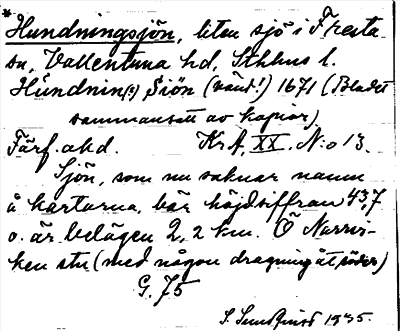 * Hundningsjön, liten sjö i Fresta
sn, Vallentuna hd, Sthlms l.
Hündnin(?) Siön (vänd!) 1671 (Bladet
sammansatt av kopior)
Färf. akd. KrA, XX. N:o 13.
Sjön, som nu saknar namn
å kartorna, bär höjdsiffran 43,7
o. är belägen 2,2 km. Ö Norrvi-
ken stn (med någon dragning åt söder)
G. 75
1935.